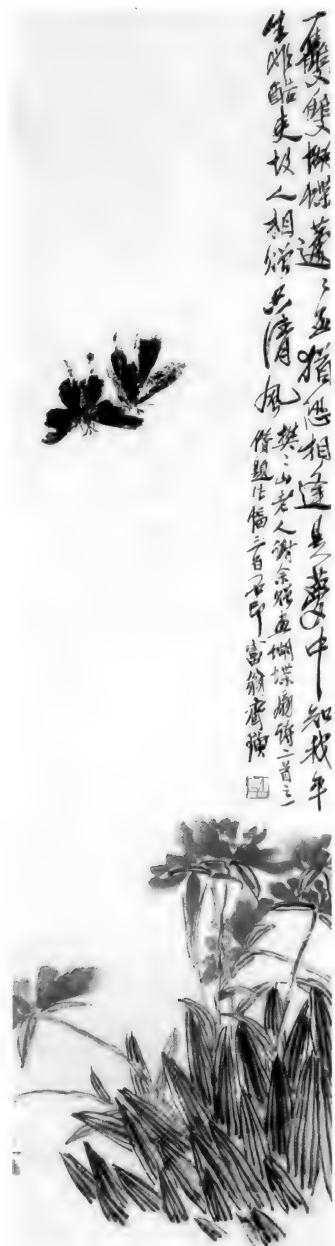 雙雙蝴蝶蘧〻至猶恐相逢是夢中知我平
生非酷吏故人相贈共清風
樊〻山老人謝余畫蝴蝶扇詩二首之一
借題此幅三百石印富翁齊璜